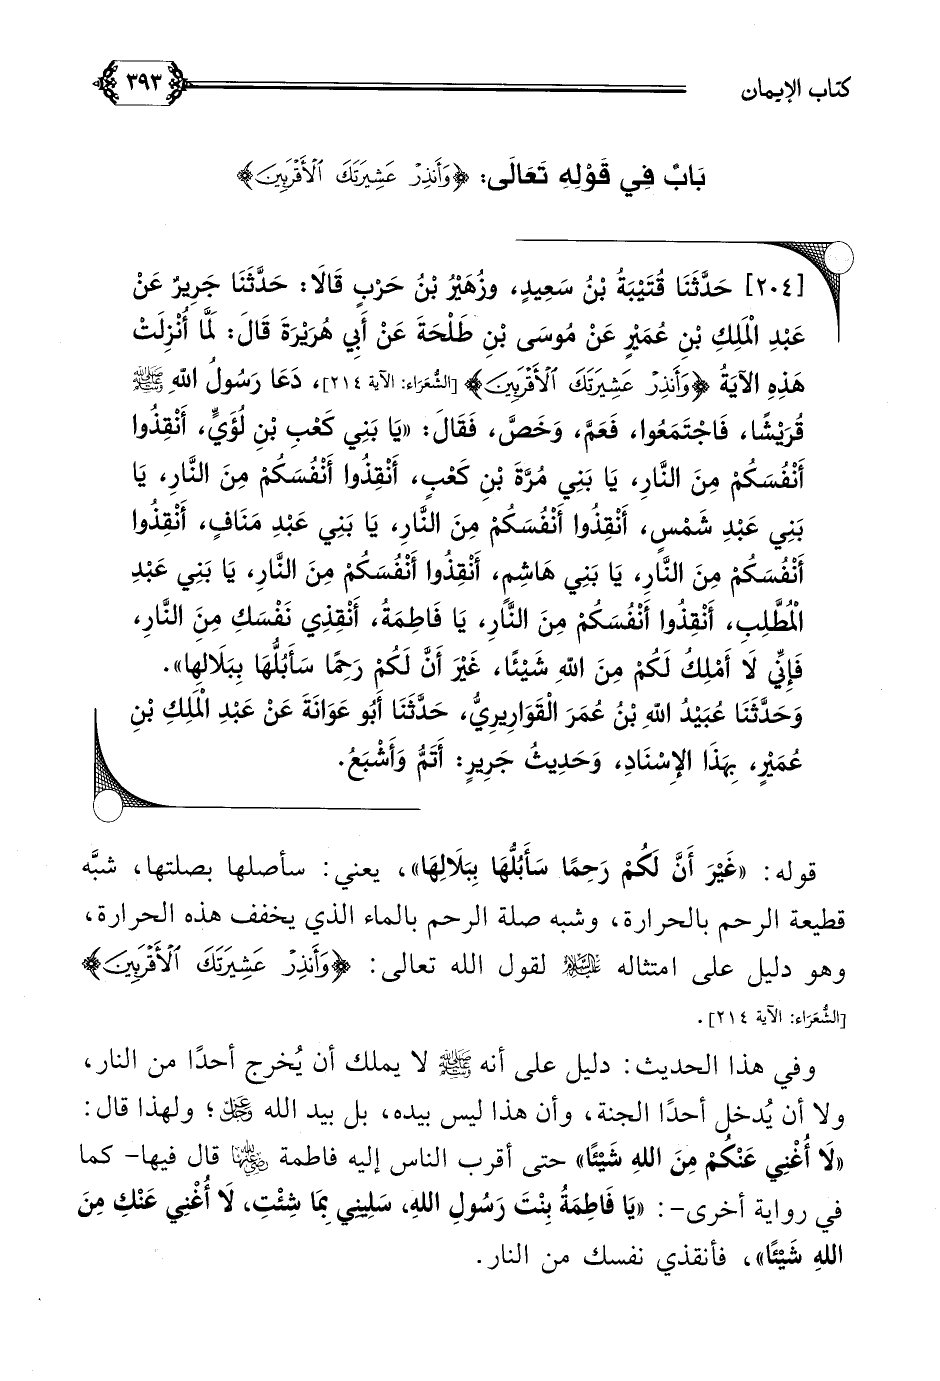 كتاب الإيمان ٣٩٣
بَابٌ فِي قَوْلِهِ تَعَالَى: ﴿وَأَنذِرْ عَشِيرَتَكَ ٱلْأَقْرَبِينَ﴾
[٢٠٤] حَدَّثَنَا قُتَيْبَةُ بْنُ سَعِيدٍ، وزُهَيْرُ بْنُ حَرْبٍ قَالَا: حَدَّثَنَا جَرِيرٌ عَنْ
عَبْدِ الْمَلِكِ بْنِ عُمَيْرٍ عَنْ مُوسَى بْنِ طَلْحَةَ عَنْ أَبِي هُرَيْرَةَ قَالَ: لَمَّا أُنْزِلَتْ
هَذِهِ الآيَةُ ﴿وَأَنذِرْ عَشِيرَتَكَ ٱلْأَقْرَبِينَ﴾ [الشُّعَرَاء: الآية ٢١٤]، دَعَا رَسُولُ اللهِ ﷺ
قُرَيْشًا، فَاجْتَمَعُوا، فَعَمَّ، وَخَصَّ، فَقَالَ: «يَا بَنِي كَعْبِ بْنِ لُؤَيٍّ، أَنْقِذُوا
أَنْفُسَكُمْ مِنَ النَّارِ، يَا بَنِي مُرَّةَ بْنِ كَعْبٍ، أَنْقِذُوا أَنْفُسَكُمْ مِنَ النَّارِ، يَا
بَنِي عَبْدِ شَمْسٍ، أَنْقِذُوا أَنْفُسَكُمْ مِنَ النَّارِ، يَا بَنِي عَبْدِ مَنَافٍ، أَنْقِذُوا
أَنْفُسَكُمْ مِنَ النَّارِ، يَا بَنِي هَاشِمٍ، أَنْقِذُوا أَنْفُسَكُمْ مِنَ النَّارِ، يَا بَنِي عَبْدِ
الْمُطَّلِبِ، أَنْقِذُوا أَنْفُسَكُمْ مِنَ النَّارِ، يَا فَاطِمَةُ، أَنْقِذِي نَفْسَكِ مِنَ النَّارِ،
فَإِنِّي لَا أَمْلِكُ لَكُمْ مِنَ اللهِ شَيْئًا، غَيْرَ أَنَّ لَكُمْ رَحِمًا سَأَبُلُّهَا بِبَلَالِهَا».
وَحَدَّثَنَا عُبَيْدُ اللهِ بْنُ عُمَرَ الْقَوَارِيرِيُّ، حَدَّثَنَا أَبُو عَوَانَةَ عَنْ عَبْدِ الْمَلِكِ بْنِ
عُمَيْرٍ، بِهَذَا الإِسْنَادِ، وَحَدِيثُ جَرِيرٍ: أَتَمُّ وَأَشْبَعُ.
قوله: «غَيْرَ أَنَّ لَكُمْ رَحِمًا سَأَبُلُّهَا بِبَلَالِهَا»، يعني: سأصلها بصلتها، شبَّه
قطيعة الرحم بالحرارة، وشبه صلة الرحم بالماء الذي يخفف هذه الحرارة،
وهو دليل على امتثاله عليه السلام لقول الله تعالى: ﴿وَأَنذِرْ عَشِيرَتَكَ ٱلْأَقْرَبِينَ﴾
[الشُّعَرَاء: الآية ٢١٤].
وفي هذا الحديث: دليل على أنه ﷺ لا يملك أن يُخرج أحدًا من النار،
ولا أن يُدخل أحدًا الجنة، وأن هذا ليس بيده، بل بيد الله عز وجل؛ ولهذا قال:
«لَا أُغْنِي عَنْكُمْ مِنَ اللهِ شَيْئًا» حتى أقرب الناس إليه فاطمة رضي الله عنها قال فيها- كما
في رواية أخرى-: «يَا فَاطِمَةُ بِنْتَ رَسُولِ اللهِ، سَلِينِي بِمَا شِئْتِ، لَا أُغْنِي عَنْكِ مِنَ
اللهِ شَيْئًا»، فأنقذي نفسك من النار.